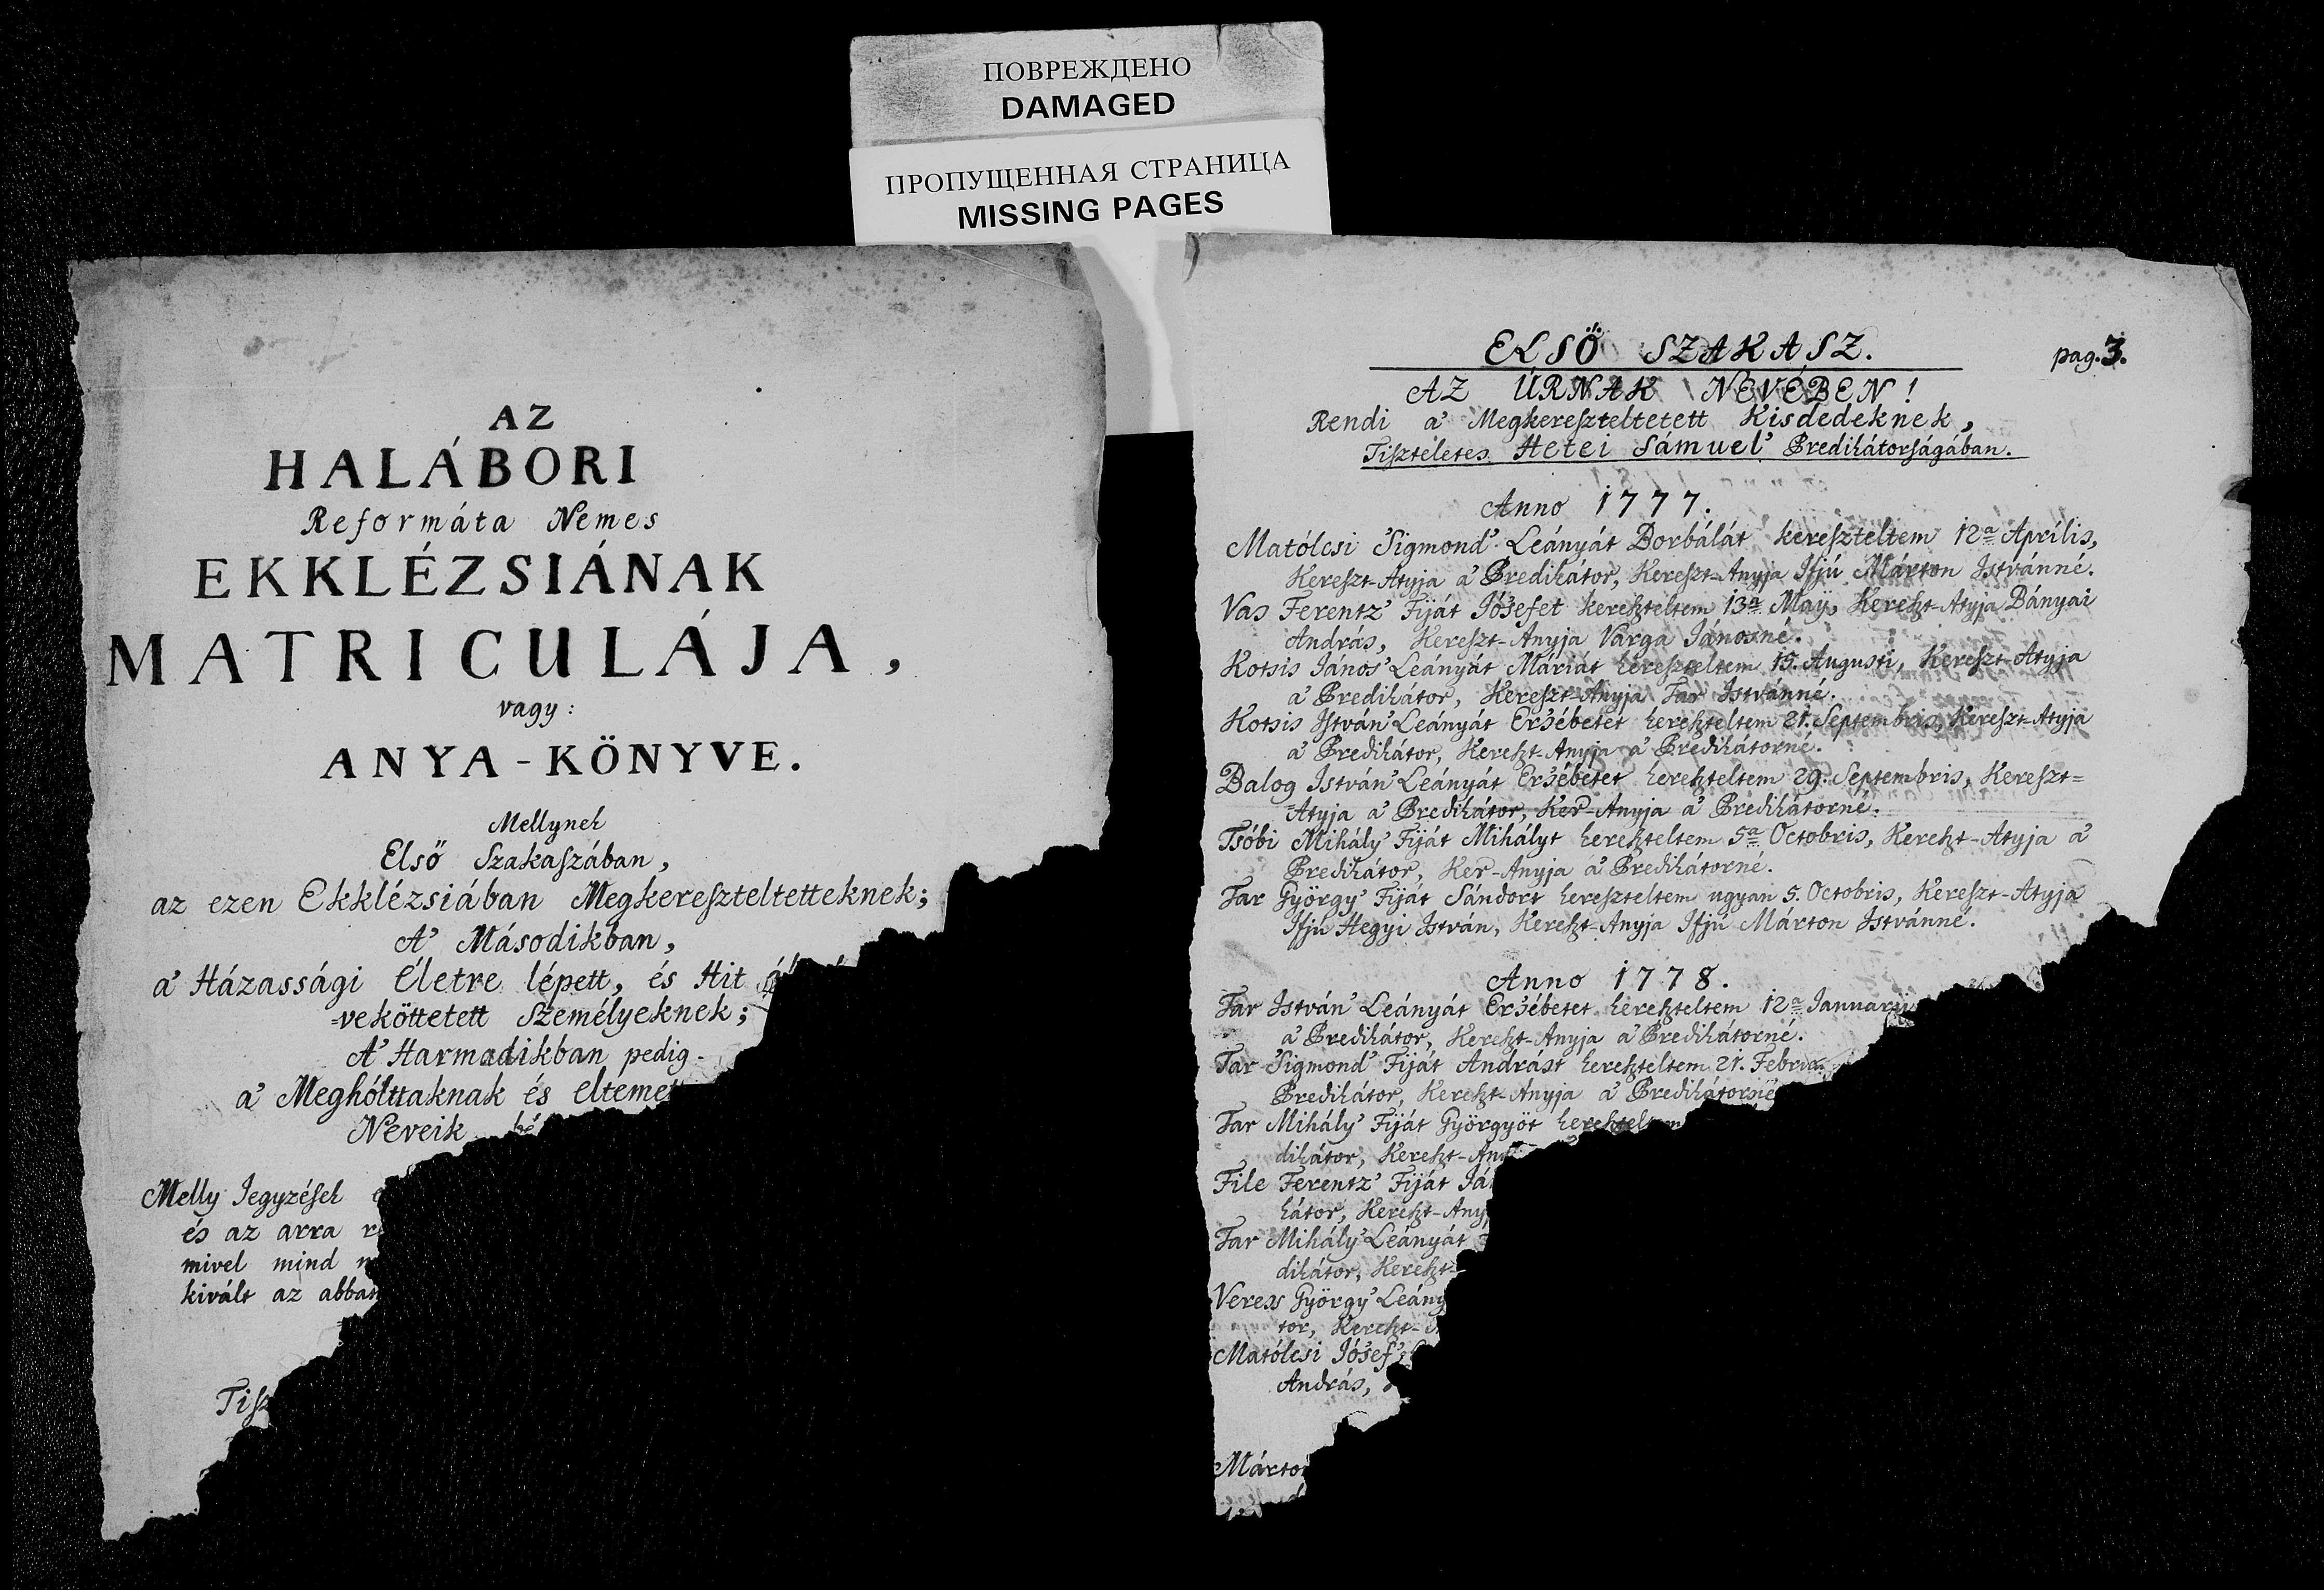 ПОВРЕЖДЕНО
DAMAGED
ПРОПУЩЕННАЯ СТРАНИЦА
MISSING PAGES
AZ
HALÁBORI
Reformáta Nemes
EKKLÉZSIÁNAK
MATRICULÁJA,
vagy:
ANYA-KÖNYVE.
Mellynek
Első Szakaszában,
az ezen Ekklézsiában Megkereszteltetteknek;
A' Másodikban,
a' Házassági Életre lépett, és Hit
=veköttetett Személyeknek;
A' Harmadikban pedig
a' Meghólttaknak és eltemet
Neveik bé
Melly Jegyzések
és az arra
mivel mind
kivált az abban
Tisz
ELSŐ SZAKASZ. pag. 3.
AZ ÚRNAK NEVÉBEN!
Rendi a' Megkereszteltetett Kisdedeknek,
Tisztéletes Hetei Sámuel' Prediкátorságában.
Anno 1777.
Matólcsi 'Sigmond' Leányát Borbálát kereszteltem 12a Április,
Kereszt-Atyja a' Predikátor, Kereszt-Anyja Ifjú Márton Istvánné.
Vas Ferentz' Fiját Jó'sefet kereszteltem 13a Maÿ, Kereszt-Atyja Bányai
András, Kereszt-Anyja Varga Jánosné.
Kotsis János' Leányát Máriát kereszteltem 15. Augusti, Kereszt-Atyja
a' Predikátor, Kereszt-Anyja Far Istvánné.
Kotsis István' Leányát Er'sébetet kereszteltem 21. Septembris, Kereszt-Atyja
a' Predikátor, Kereszt-Anyja a' Predikátorné.
Balog István' Leányát Er'sébetet kereszteltem 29. Septembris, Kereszt=
=Atyja a' Predikátor, Ker-Anyja a' Predikátorné.
Tsóbi Mihály' Fiját Mihályt kereszteltem 5a Octobris, Kereszt-Atyja a'
Predikátor, Ker-Anyja a' Predikátorné.
Far György' Fiját Sándort kereszteltem ugyan 5. Octobris, Kereszt-Atyja
Ifjú Hegyi István, Kereszt-Anyja Ifjú Márton Istvánné.
Anno 1778.
Far István' Leányát Er'sébetet kereszteltem 12a Januarii
a' Predikátor, Kereszt-Anyja a' Predikátorné.
Far 'Sigmond' Fiját Andrást kereszteltem 21. Febru
Predikátor, Kereszt-Anyja a' Predikátorné
Far Mihály' Fiját Györgyöt keresztelten
dikátor, Kereszt-Any
File Ferentz' Fiját Já
kátor, Kereszt-Any
Far Mihály' Leányát
dikátor, Kereszt-
Veress György' Leány
tor, Kereszt-
Matólcsi Jó'sef'
András,
Márton